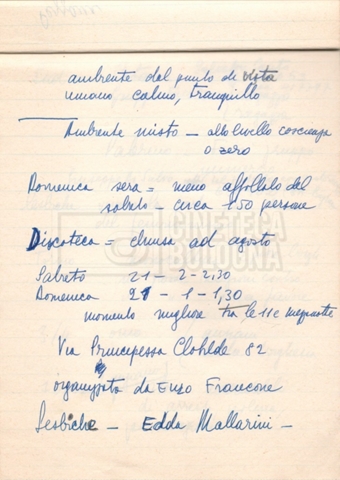 ambiente dal punto di vista
umano calmo, tranquillo
Ambiente misto - alto livello coscienza
o zero
Domenica sera = meno affollato del
sabato - circa 150 persone
Discoteca = chiusa ad agosto
Sabato 21 - 2 - 2,30
Domenica 21 - 1 - 1,30
momento migliore tra le 11 e mezzanotte
Via Principessa Clotilde 82
organizzato da Enzo Francone
Lesbiche - Edda Mallarini -
CINETECA
BOLOGNA